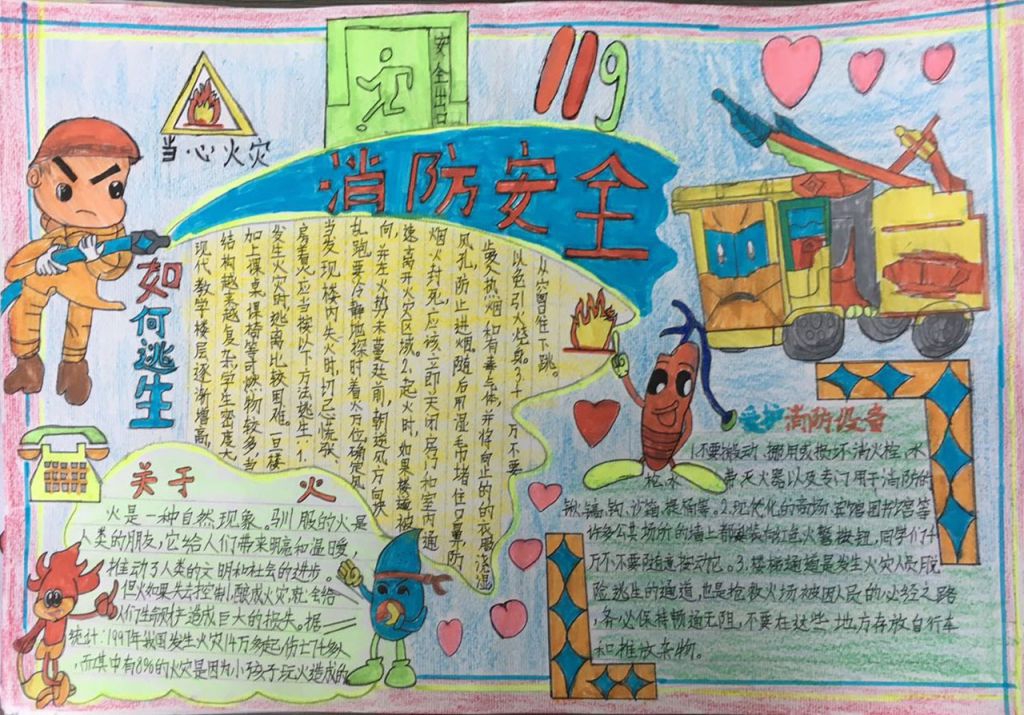 119
安全出口
当心火灾
消防安全
如何逃生
现代教学楼层逐渐增高,
结构越来越复杂,学生密度大,
加上课桌课椅等可燃物较多,当
发生火灾时逃离比较困难。一旦楼
房着火,应当按以下方法逃生:1.
当发现楼内失火时,切记慌张、
乱跑,要冷静地探明着火方位,确定风
向,并在火势未蔓延前,朝逆风方向快
速离开火灾区域。2.起火时,如果楼道被
烟火封死,应该立即关闭房门和室内通
风孔,防止进烟。随后用湿毛巾堵住口鼻,防
止吸入热烟和有毒气体,并将向上的的衣服浇湿
以免引火烧身。3.千万不要
从窗口往下跳。
关于火
火是一种自然现象。驯服的火是
人类的朋友,它给人们带来明亮和温暖,
推动了人类的文明和社会的进步。
但火如果失去控制,酿成火灾,就会给
人们生命财产造成巨大的损失。据
统计:1997年我国发生火灾14万多起,伤亡74多人
,而其中有8%的火灾是因为小孩子玩火造成的
爱护消防设备
1.不要搬动、挪用或损坏消火栓、水
枪、水带、灭火器以及专门用于消防的
锹、镐、钩、沙箱、提桶等。2.现代化的商场、宾馆、图书馆等
许多公共场所的墙上都安装有红色火警按钮,同学们千
万不不要随意按动它。3.楼梯通道是发生火灾人员脱
险逃生的通道,也是抢救火场被困人民的必经之路
,务必保持畅通无阻,不要在这些地方存放自行车
和堆放杂物。